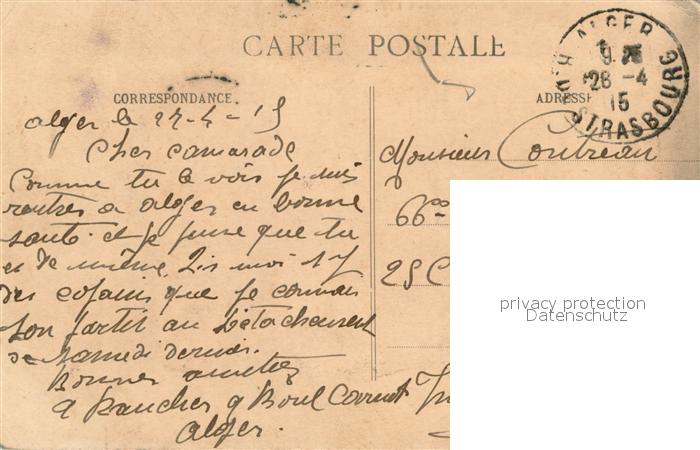 CARTE POSTALE
ALGER
STRASBOURG
9
26 -4
15
CORRESPONDANCE
ADRESSE
Alger le 27-4-15
Cher camarade
Comme tu le vois je suis
rentrer a alger en bonne
santé et je pense que tu
es de même. Dis moi s'il y
des copains que je connais
son partit au Détachement
de samedi dernier.
Bonnes amitiés
9 Boul Carnot
Alger.
Monsieur
66
25 C
privacy protection
Datenschutz